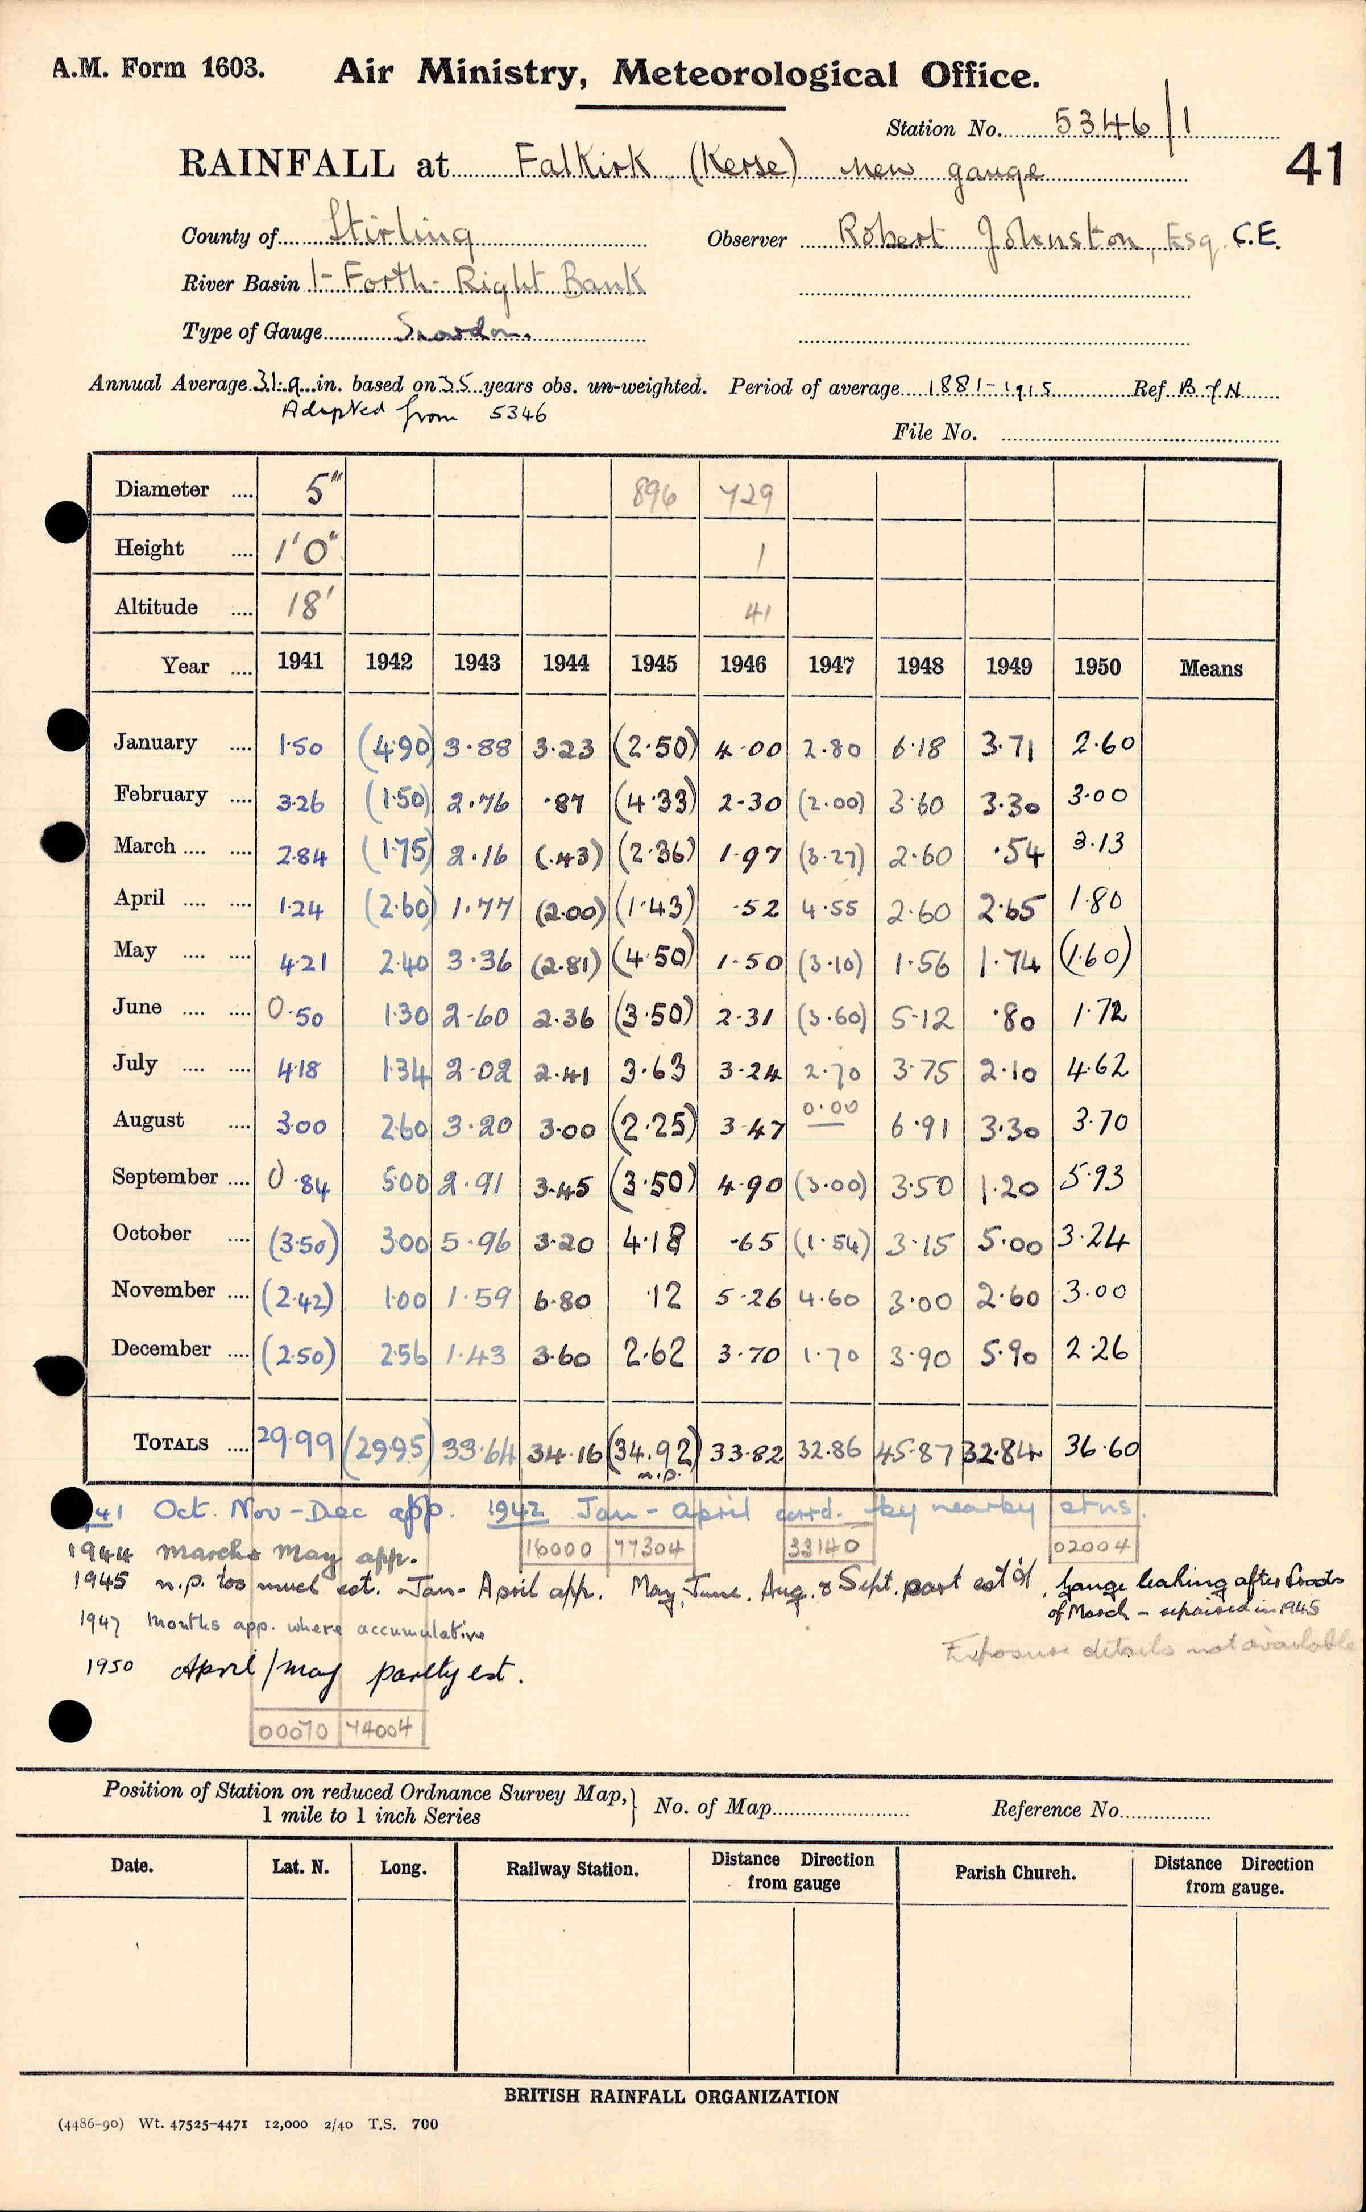 A.M. Form 1603. Air Ministry, Meteorological Office.
Station No. 5346/1
RAINFALL at Falkirk (Kerse) New gauge 41
County of Stirling Observer Robert Johnston, Esq. C.E.
River Basin 1-Forth-Right Bank
Type of Gauge Snowdon.
Annual Average 31.9 in. based on 35 years obs. un-weighted. Period of average 1881-1915 Ref B of N
Adapted from 5346
File No.
Diameter .... 5" 896 729
Height .... 1'0" 1
Altitude .... 18' 41
Year .... 1941 1942 1943 1944 1945 1946 1947 1948 1949 1950 Means
January .... 1.50 (4.90) 3.88 3.23 (2.50) 4.00 2.80 6.18 3.71 2.60
February .... 3.26 (1.50) 2.76 .87 (4.33) 2.30 (2.00) 3.60 3.30 3.00
March .... .... 2.84 (1.75) 2.16 (.43) (2.36) 1.97 (3.27) 2.60 .54 3.13
April .... .... 1.24 (2.60) 1.77 (2.00) (1.43) .52 4.55 2.60 2.65 1.80
May .... .... 4.21 2.40 3.36 (2.81) (4.50) 1.50 (3.10) 1.56 1.74 (1.60)
June .... .... 0.50 1.30 2.60 2.36 (3.50) 2.31 (3.60) 5.12 .80 1.72
July .... .... 4.18 1.34 2.02 2.41 3.63 3.24 2.70 3.75 2.10 4.62
August .... 3.00 2.60 3.20 3.00 (2.25) 3.47 0.00 6.91 3.30 3.70
September .... 0.84 5.00 2.91 3.45 (3.50) 4.90 (3.00) 3.50 1.20 5.93
October .... (3.50) 3.00 5.96 3.20 4.18 .65 (1.54) 3.15 5.00 3.24
November .... (2.42) 1.00 1.59 6.80 .12 5.26 4.60 3.00 2.60 3.00
December .... (2.50) 2.56 1.43 3.60 2.62 3.70 1.70 3.90 5.90 2.26
TOTALS .... 29.99 (29.95) 33.64 34.16 (34.92) 33.82 32.86 45.87 32.84 36.60
n.p.
41 Oct. Nov-Dec app. 1942 Jan-April by nearby stns.
1944 March & May app. 16000 77304 33140 02004
1945 n.p. too much est. Jan-April app. May, June, Aug. & Sept. part est'd. Gauge leaking after floods
of March - repaired in 1945
1947 Months app. where accumulative
Exposure details not available
1950 April/May partly est.
00070 74004
Position of Station on reduced Ordnance Survey Map, 1 mile to 1 inch Series } No. of Map Reference No.
Date. Lat. N. Long. Railway Station. Distance Direction from gauge Parish Church. Distance Direction from gauge.
BRITISH RAINFALL ORGANIZATION
(4486-90) Wt. 47525-4471 12,000 2/40 T.S. 700